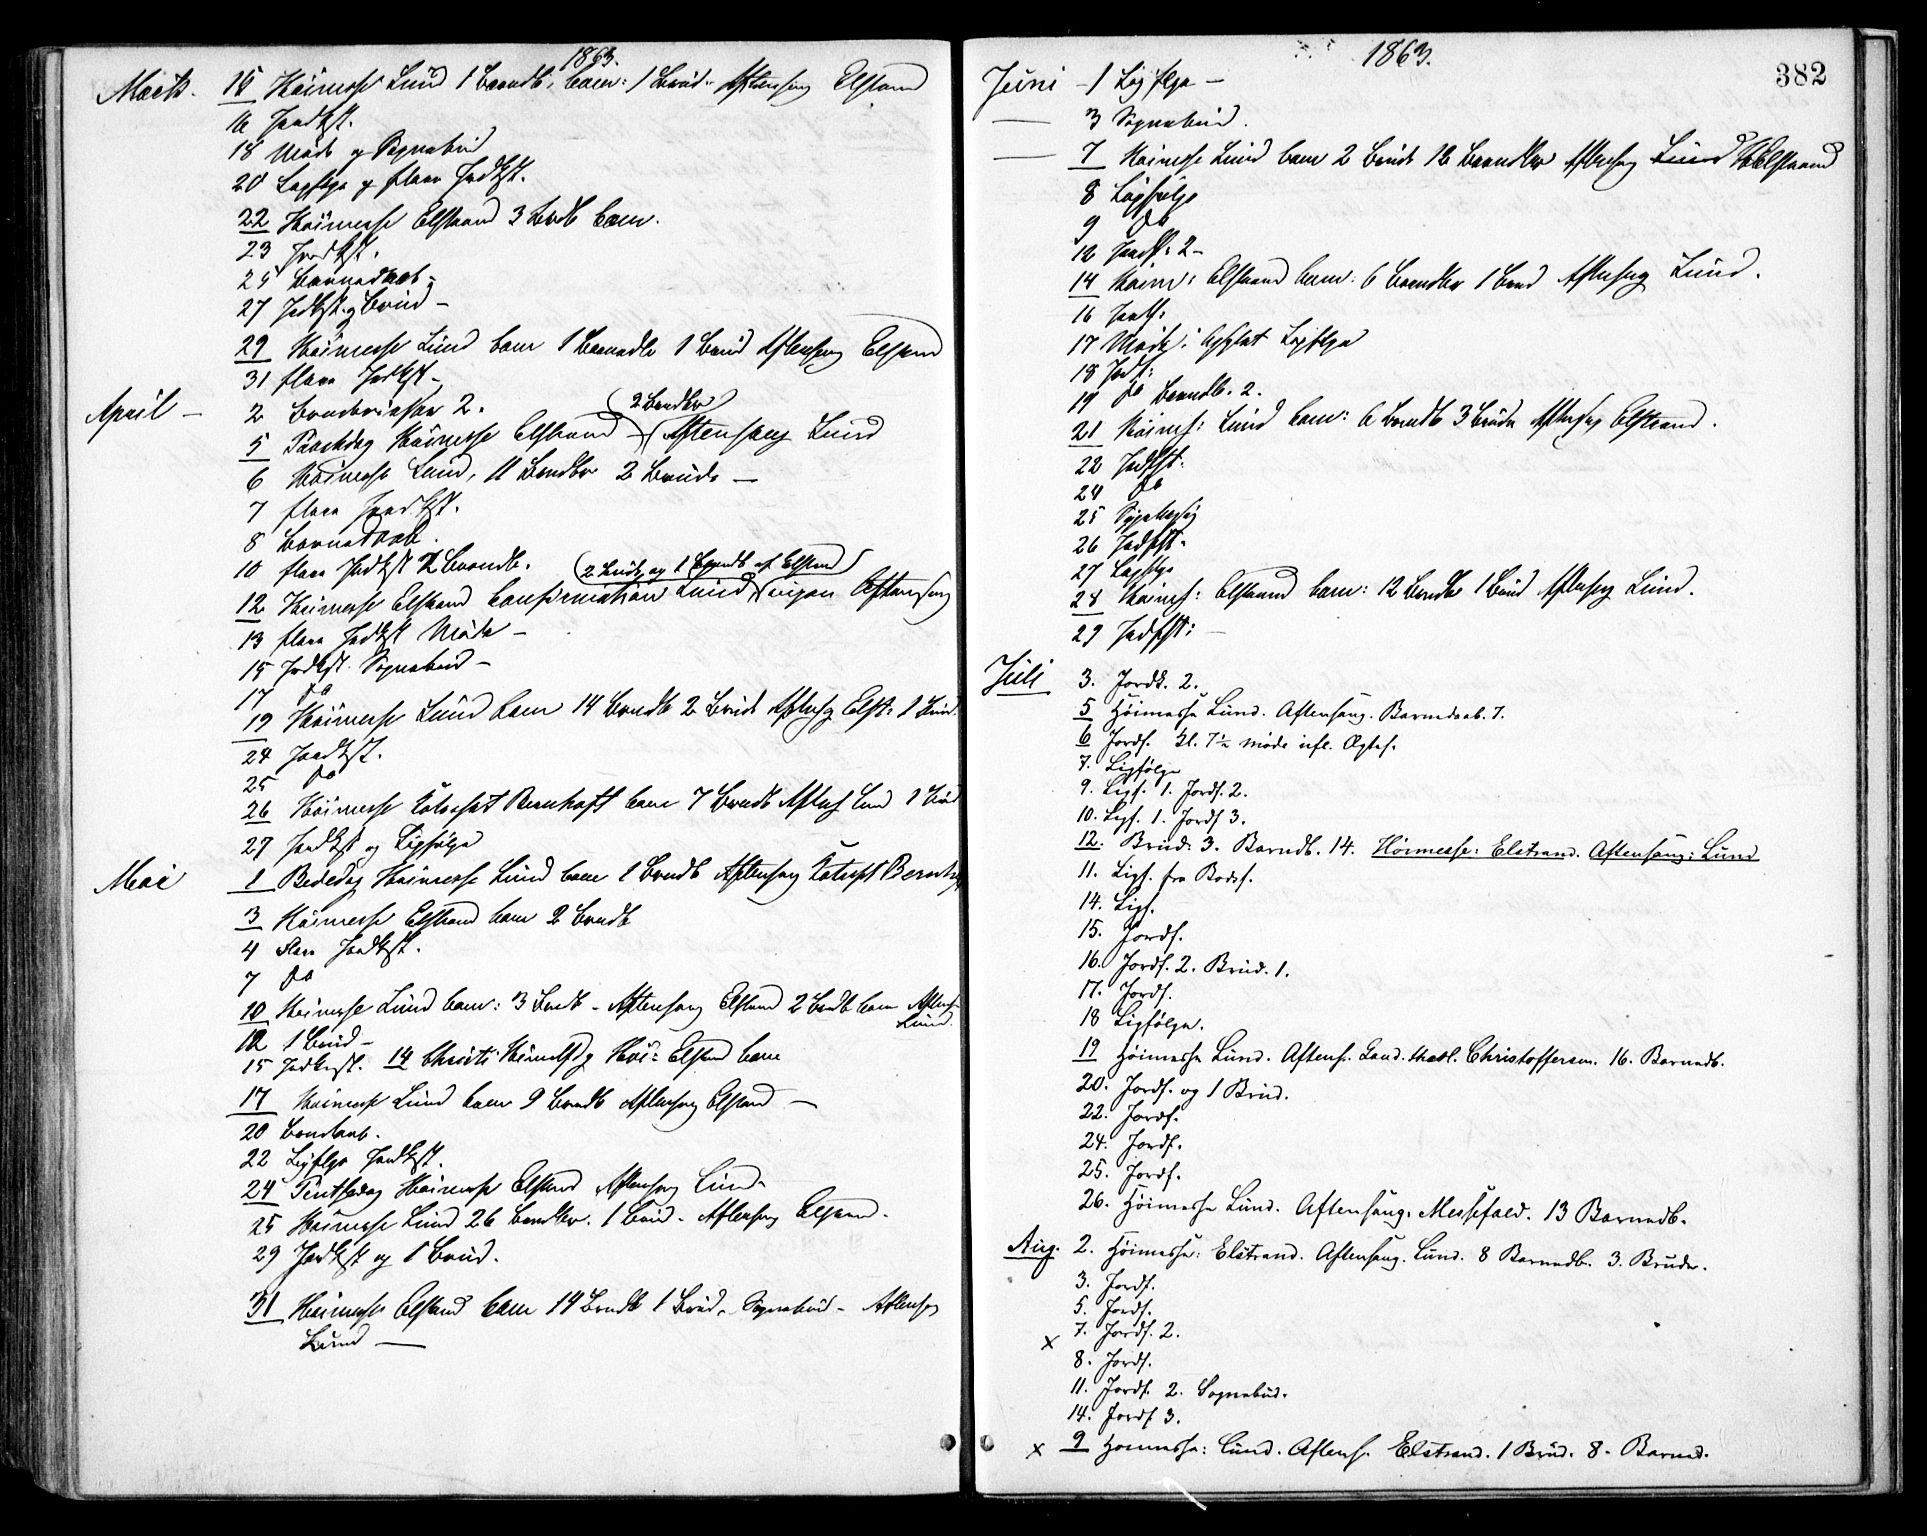 1863.
Marts. 15 Höimesse Lund 1 Barndb. com: 1 Brud. Aftensang Elstrand
16 Jordkst.
18 Möde og Sognebud
20 Ligflge og flere Jordkst.
22 Höimesse Elstrand 3 Brdb com.
23 Jordkst.
25 Barnedaab
27 Jordkst. og Brud –
29 Höimesse Lund com 1 Barndb 1 Brud Aftensang Elstrand
31 flere Jordkst –
April – 2 2.
5 Paaskdag Höimesse Elstrand – (2 Barndbr) Aftensang Lund
6 Höimesse Lund, 11 Barndbr 2 Brude –
7 flere Jord.kst.
8 Barnedaab.
10 flere Jordkst 2 Barndb.
(2 Brude og 1 Barndb af Elstrand)
12 Höimesse Elstrand Confirmation Lund ingen Aftensang
13 flere Jordkst Möde –
15 Jordkst. Sognebud –
17 Do
19 Höimesse Lund com 14 Barndb 2 Brude Aftensg Elst: 1 Brud.
24 Jordkst.
25 Do
26 Höimesse Bernhoft com 7 Barndb Aftens Lund 1 Brud
27 Jordkst og Ligfölge
Mai 1 Bededag Höimesse Lund com 1 Barndb Aftensang Bernh
3 Höimesse Elstrand com 2 Barndb
4 flere Jordkst.
7 Do
10 Höimesse Lund com: 3 Barndb – Aftensang Elstrand 2 Barndb com Aftens
Lund.
12 1 Brud –
15 Jordkst. 14 Christi Himmelfdg Höi: Elstrand com
17 Höimesse Lund com 9 Barndb Aftensang Elstrand –
20 Barndaab.
22 Ligflge Jordkst.
24 Pintsedag Höimesse Elstrand Aftensang Lund.
25 Höimesse Lund 26 Barndbr. 1 Brud. Aftensang Elstrand.
29 Jordkst og 1 Brud.
31 Höimesse Elstrand com 14 Barndb 1 Brud. Sognebud – Aftensang
Lund –
1863.
382
Juni – 1 Ligflge –
— 3 Sognebud.
— 7 Höimesse Lund com 2 Brude 12 Barndbr Aftensang Lund Elstrand
8 Ligfölge
9 Do
12 Jordf: 2 –
14 Höim: Elstrand com: 6 Barndbr 1 Brud Aftensang Lund.
16 Jordf.
17 Möde i Ligflge
18 Jordf:
19 Do Barndb. 2.
21 Höimes: Lund com: 6 Barndb 3 Brude Aftensg Elstrand.
22 Jordfst.
24 Do
25
26 Jordfst.
27 Ligflge
28 Höimes: Elstrand com: 12 Barndb 1 Brud Aftensg Lund.
29 Jordfst: –
Juli 3. Jordk. 2.
5 Höimesse Lund. Aftensang. Barnedaab. 7.
6 Jordf. Kl. 7½ möde
7. Ligfölge
9. Ligf. 1. Jordf. 2.
10. Ligf. 1. Jordf 3.
12. Brud. 3. Barndb. 14. Höimesse: Elstrand. Aftensang: Lund
11. Ligf. fra Bodsf.
14. Ligf.
15. Jordf.
16. Jordf. 2. Brud. 1.
17. Jordf.
18 Ligfölge.
19 Höimesse Lund. Aftens. Cand. theol. Christoffersen. 16. Barnedb.
20. Jordf. og 1 Brud.
22. Jordf.
24. Jordf.
25. Jordf.
26. Höimesse Lund. Aftensang. Messefald. 13 Barnedb.
Aug. 2. Höimesse: Elstrand. Aftensang. Lund. 8 Barnedb. 3. Brude.
3. Jordf.
5. Jordf.
x 7. Jordf. 2.
8. Jordf.
11. Jordf. 2. Sognebud.
14. Jordf 3.
x 9 Höimesse: Lund. Aftens. Elstrand. 1 Brud. 8. Barned.